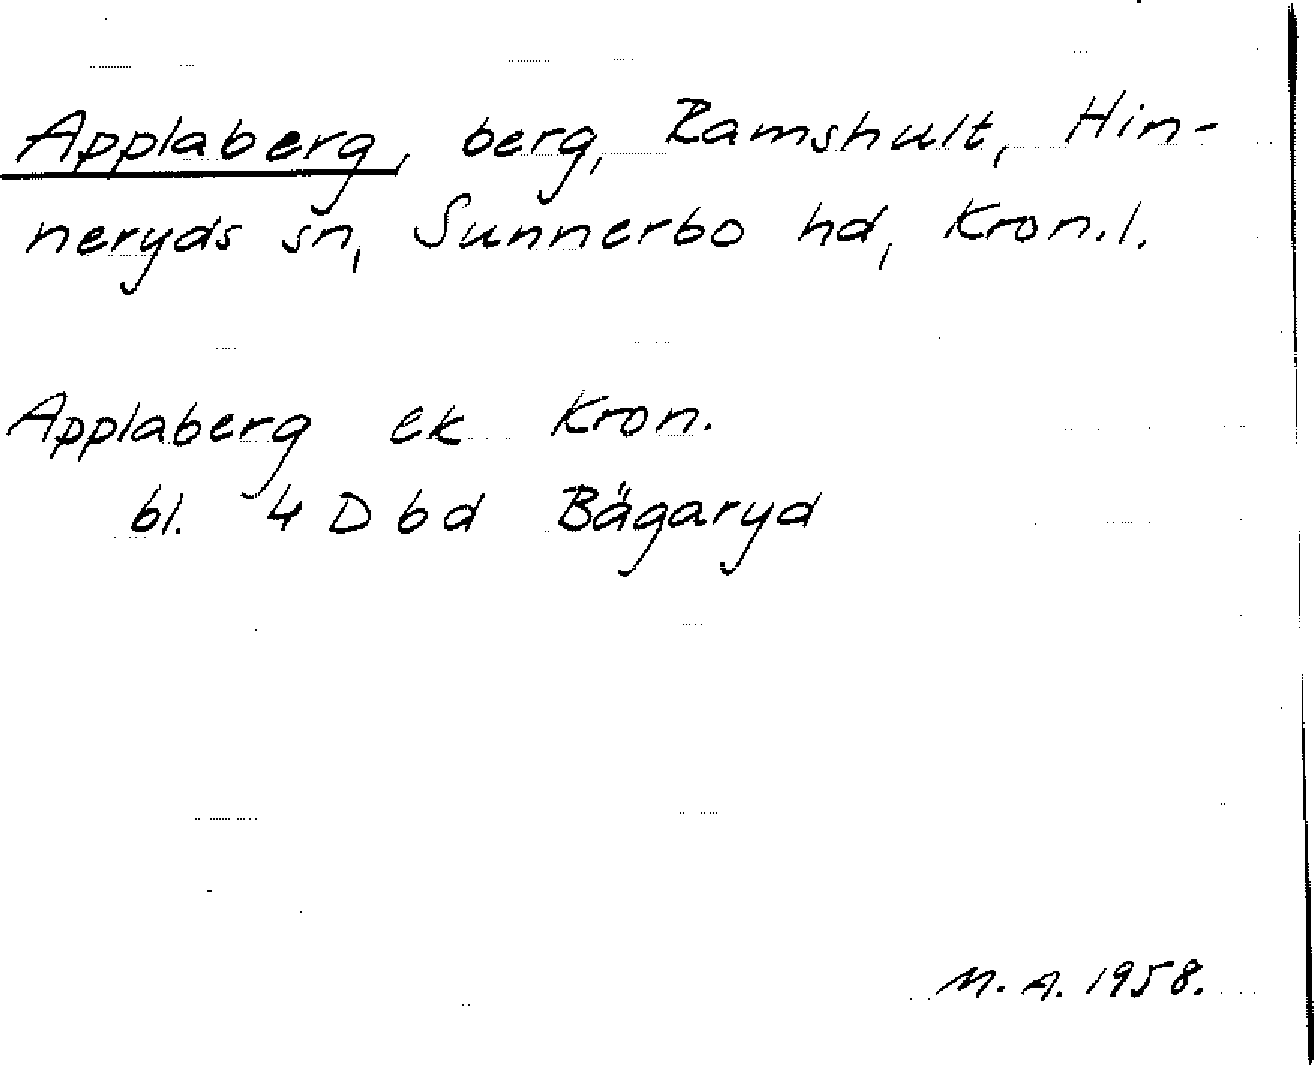 Applaberg, berg, Ramshult, Hin-
neryds sn, Sunnerbo hd, Kron.l.
Applaberg ek Kron.
bl. 4 D b d Bägaryd
M. A. 1958.